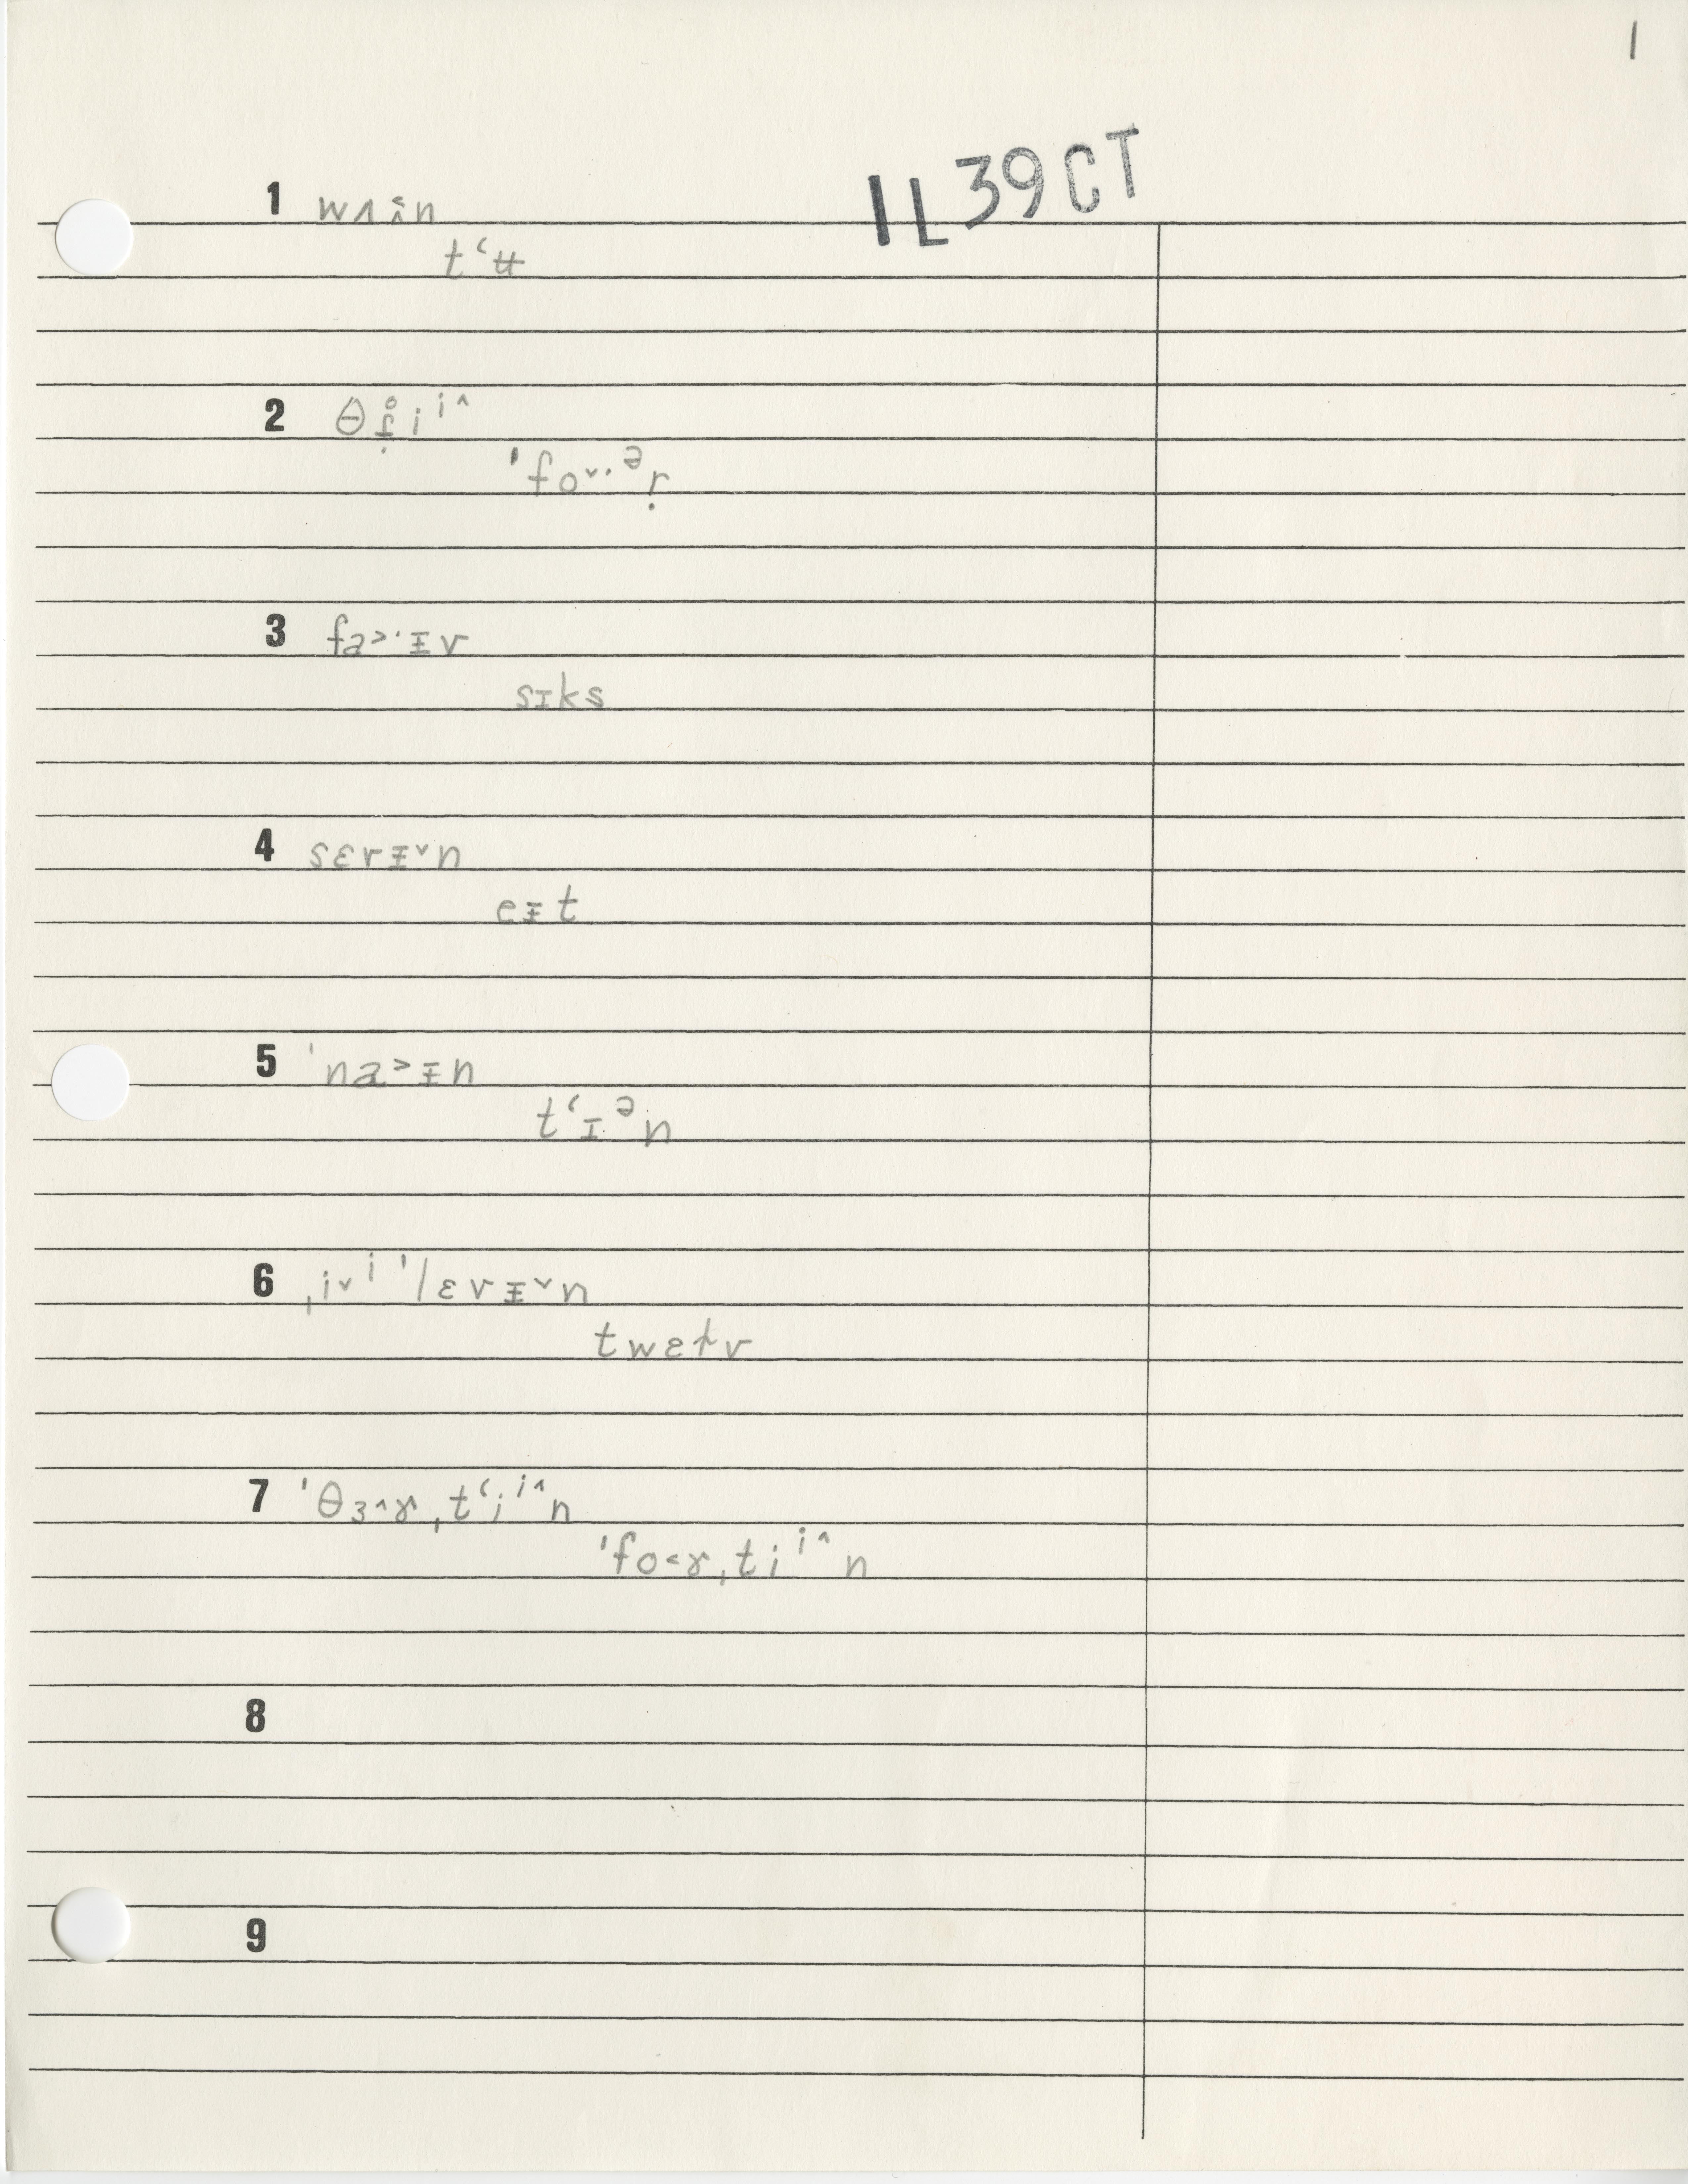 1
IL39CT
1 wʌɨ̂n
tʻʉ
2 θɹ̣̊i iˆ
ˈfo˅·ᵊṛ
3 fa˃·ᵻv
sɪks
4 sɛvᵻ˅n
eᵻt
5 ˈna˃ᵻn
tʻɪ·ᵊn
6 ˌi˅ⁱ ˈlɛvᵻ˅n
twɛɫv
7 ˈθɜ˄ɤˌtʻiⁱ˄n
ˈfo˂ɤˌtiⁱ˄n
8
9